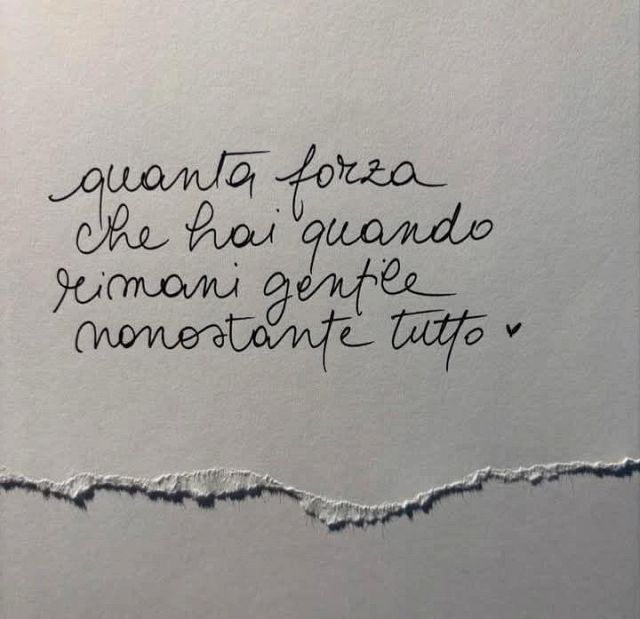 quanta forza
che hai quando
rimani gentile
nonostante tutto ♥